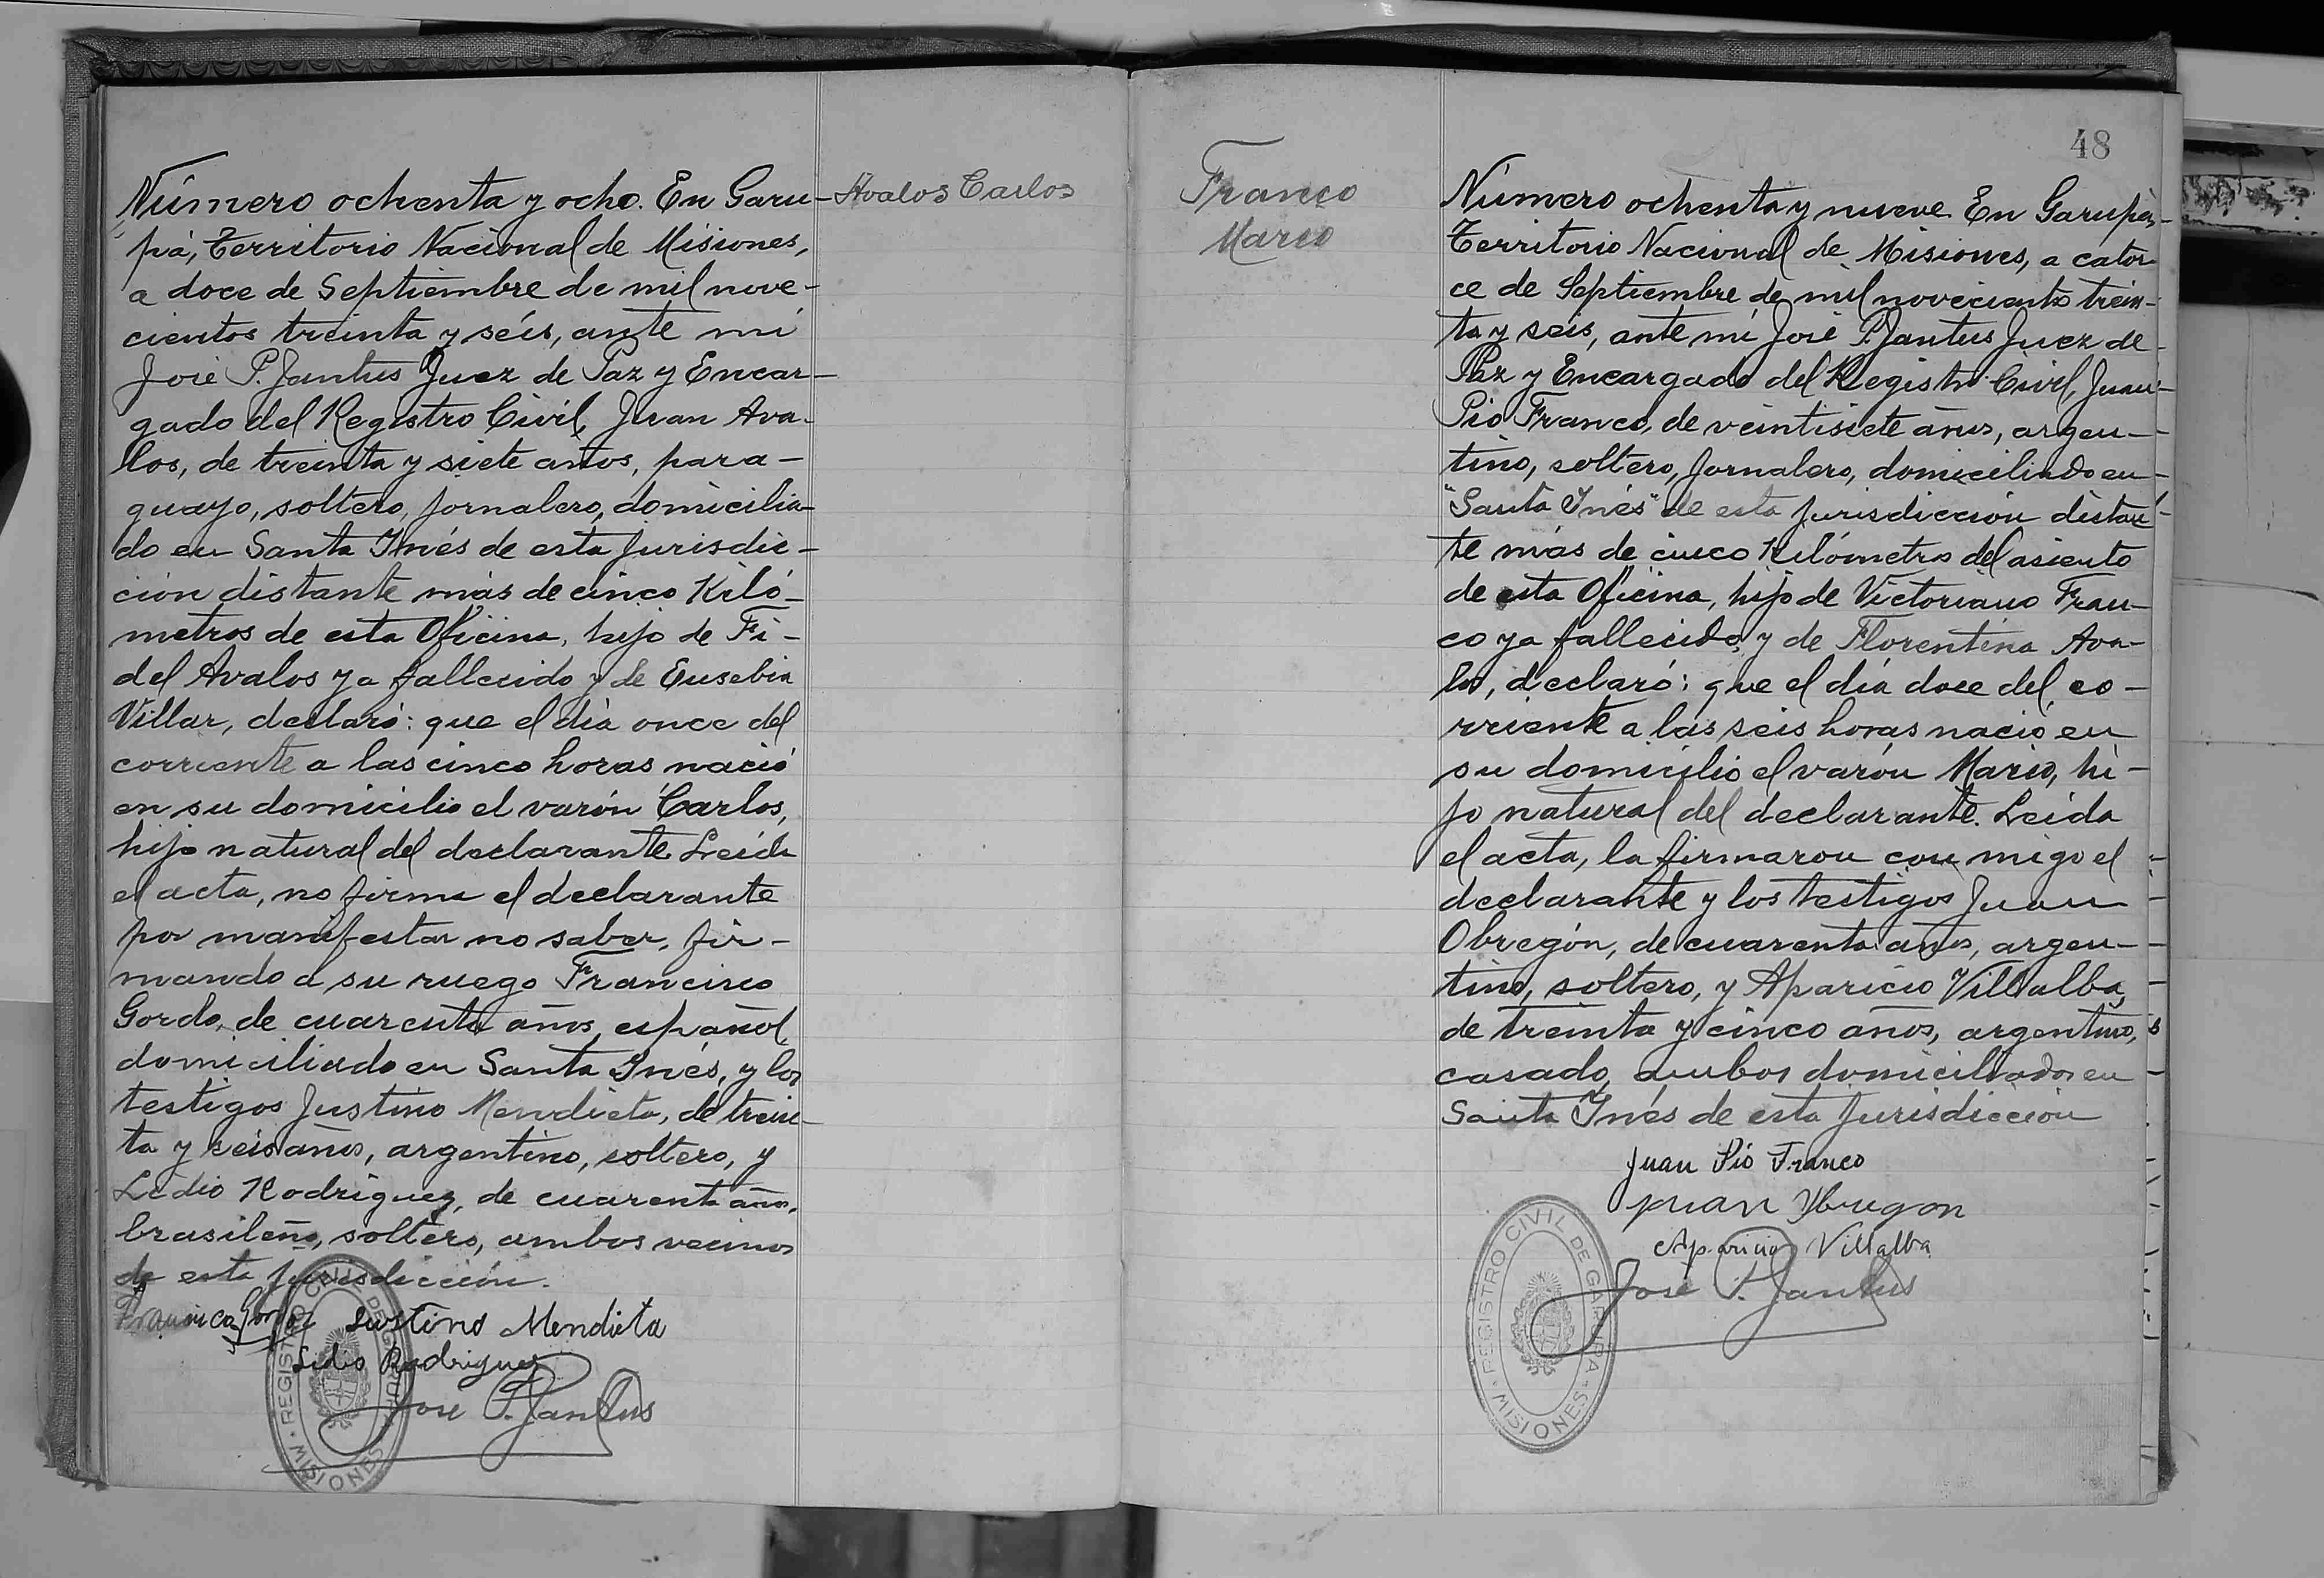 Número ochenta y ocho. En Garu-
pá, Territorio Nacional de Misiones,
a doce de Septiembre de mil nove-
cientos treinta y séis, ante mí
José P. Jantus Juez de Paz y Encar-
gado del Registro Civil, Juan Ava-
los, de treinta y siete años, para-
guayo, soltero, jornalero, domicilia-
do en Santa Inés de esta jurisdic-
ción distante más de cinco Kiló-
metros de esta Oficina, hijo de Fi-
del Avalos ya fallecido y de Eusebia
Villar, declaró: que el día once del
corriente a las cinco horas nació
en su domicilio el varón Carlos,
hijo natural del declarante. Leída
el acta, no firma el declarante
por manifestar no saber, fir-
mando a su ruego Francisco
Gordo, de cuarenta años, español,
domiciliado en Santa Inés, y los
testigos Justino Mendieta, de trein-
ta y seis años, argentino, soltero, y
Ledio Rodriguez, de cuarenta años,
brasileño, soltero, ambos vecinos
de esta jurisdicción.
Gordo Justino Mendieta
Rodriguez
José P. Jantus
REGISTRO CIVIL DE GARUPA
MISIONES
Avalos Carlos
Franco
Mario
48
Número ochenta y nueve. En Garupá,
Territorio Nacional de Misiones, a cator-
ce de Séptiembre de mil novecientos trein-
ta y seis, ante mí José P. Jantus Juez de
Paz y Encargado del Registro Civil, Juan
Pio Franco, de veintisiete años, argen-
tino, soltero, jornalero, domiciliado en
"Santa Inés" de esta jurisdicción distan-
te más de cinco Kilómetros del asiento
de esta Oficina, hijo de Victoriano Fran-
co ya fallecido y de Florentina Ava-
los, declaró: que el día doce del co-
rriente a las seis horas nació en
su domicilio el varón Mario, hi-
jo natural del declarante. Leída
el acta, la firmaron con migo el
declarante y los testigos Juan
Obregón, de cuarenta años, argen-
tino, soltero, y Aparicio Villalba,
de treinta y cinco años, argentino,
casado, ambos domiciliados en
Santa Inés de esta jurisdicción
Juan Pio Franco
Juan
Aparicio Villalba
José P. Jantus
REGISTRO CIVIL DE GARUPA
MISIONES